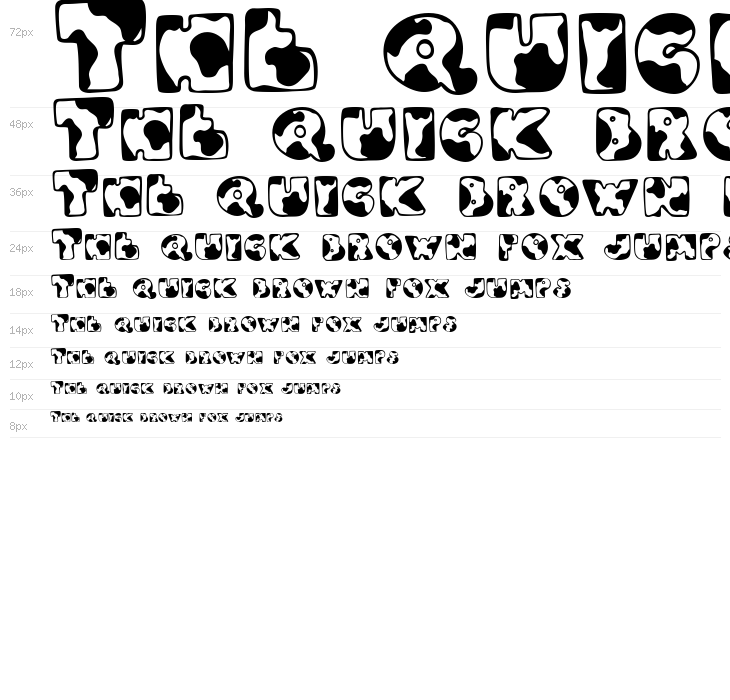 72px The QUICK
48px The QUICK BRO
36px The QUICK BROWN
24px The QUICK BROWN FOX JUMPS
18px The QUICK BROWN FOX JUMPS
14px The QUICK BROWN FOX JUMPS
12px The QUICK BROWN FOX JUMPS
10px The QUICK BROWN FOX JUMPS
8px The QUICK BROWN FOX JUMPS